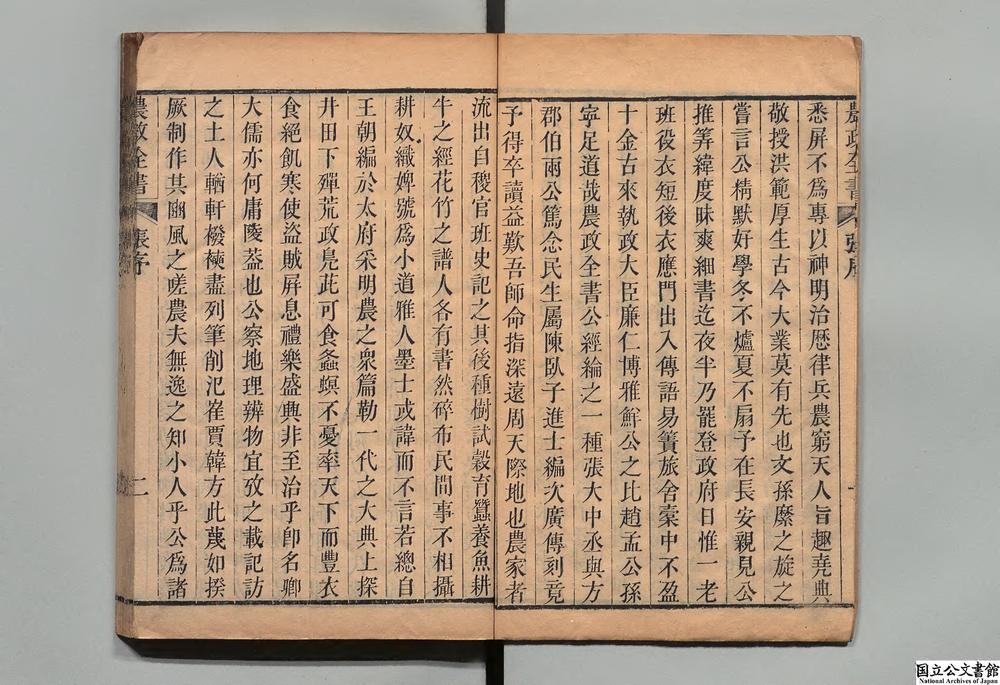 農政全書 張序 一
悉屏不爲專以神明治厯律兵農窮天人旨趣堯典
敬授洪範厚生古今大業莫有先也文孫縻之旋之
嘗言公精默好學冬不爐夏不扇予在長安親見公
推筭緯度昧爽細書迄夜半乃罷登政府日惟一老
班役衣短後衣應門出入傳語易簀旅舍橐中不盈
十金古來執政大臣廉仁博雅鮮公之比趙孟公孫
寧足道哉農政全書公經綸之一種張大中丞與方
郡伯兩公篤念民生屬陳臥子進士編次廣傳刻竟
予得卒讀益歎吾師命指深遠周天際地也農家者
流出自稷官班史記之其後種樹試穀育蠶養魚耕
牛之經花竹之譜人各有書然碎布民間事不相攝
耕奴織婢號爲小道雅人墨士或諱而不言若總自
王朝編於太府采明農之衆篇勒一代之大典上探
井田下殫荒政鳧茈可食螽螟不憂率天下而豐衣
食絕飢寒使盜賊屏息禮樂盛興非至治乎卽名卿
大儒亦何庸陵葢也公察地理辨物宜攷之載記訪
之土人輶軒襏襫盡列筆削氾崔賈韓方此蔑如揆
厥制作其豳風之嗟農夫無逸之知小人乎公爲諸
農政全書 張序 二
国立公文書館
National Archives of Japan